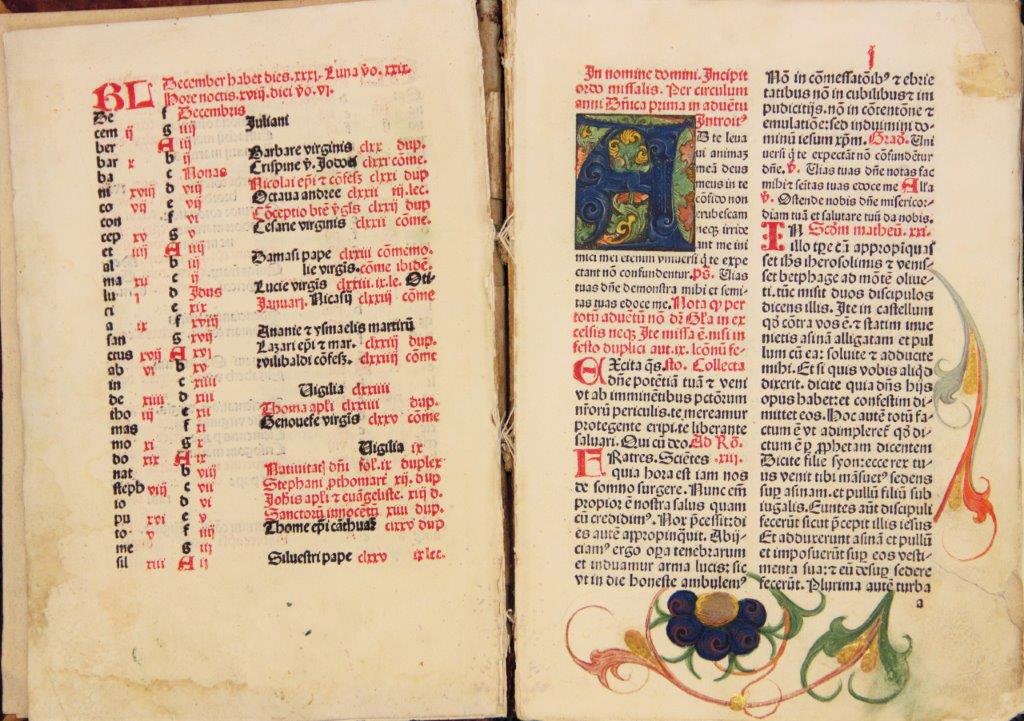 KL December habet dies.xxxj. Luna ṽo.xxix.
Hore noctis.xviij. diei ṽo.vj.
De f Decembris
cem ij g iiij Juliani
ber A iij
bar x b ij Barbare virginis clxx dup.
ba c Nonas Crispine v̛. Jodoci clxxi cõme.
ni xviij d viij Nicolai ep̃i ⁊ cõfess̃ clxxi dup.
co vij e vij Octaua andree clxxii iij.lec.
con f vi Cõceptio btẽ v̛gĩs clxxij dup
cep xv g v Cesarie virginis clxxii cõme.
et iiij A iiij
al b iij Damasi pape clxxiii cõmemo.
ma xij c ij lie virgĩs.cõme ibidẽ.
lu i d Jdus Lucie virgĩs clxxiii.ix.le. Oti-
ci e xix Januarij. Nicasij clxxiij cõme
a ix f xviij
san g xvij Ananie ⁊ ysmaelis martirũ
ctus xvij A xvj Lazari ep̃i ⁊ mar. clxxiij dup.
ab vi b xv wilibaldi cõfess̃. clxxiiij cõme
in c xiiij
de xiiij d xiij Uigilia clxxiiij
tho iij e xij Thome apl̃i clxxiiij dup.
mas f xi Genouefe virgĩs clxxv cõme
mo xi g x
do xix A ix Uigilia ix
nat b viij Natiuitatꝭ dñi fol̃.ix duplex
steph viij c vij Stephani ꝓthomarẽ xij. dup
io d vi Joh̃is apl̃i ⁊ euãgeliste. xiij d.
pu xvi e v Sanctorũ innocẽtũ xiiij dup
to v f iiij Thome ep̃i cãthuar̃ clxxv dup
me g iij
sil xiii A ij Siluestri pape clxxv ix lec.
j
In nomine domini. Incipit
ordo missalis. Per circulum
anni Dñica prima in aduẽtu
Introitꝰ
AD te leua
ui animaꝫ
meã deus
meus in te
cõfido non
erubescam
neqꝫ irride
ant me ini
mici mei etenim vniuersi q̃ te expe
ctant nõ confundentur. p̃s. Uias
tuas dñe demonstra mihi et semi-
tas tuas edoce me. Nota ꝙ per
totũ aduẽtũ nõ dr̃ Gl̃a in ex
celsis neqꝫ Ite missa ẽ. nisi in
festo duplici aut.ix.lcõnũ fe-
sto. Collecta
EXcita q̃s.
dñe potẽtiã tuã ⁊ veni
vt ab imminẽtibus pctõrum
nr̃orũ periculis. te mereamur
protegente eripi. te liberante
saluari. Qui cũ deo. Ad Rõ.
FRatres. Sciẽtes xiii.
quia hora est iam nos
de somno surgere. Nunc em̃
propior ẽ nostra salus quam
cũ credidimꝰ. Nox p̃cessit: di
es autẽ appropinquit. Abij-
ciamꝰ ergo op̃a tenebrarum
et induamur arma lucis: sic
vt in die honeste ambulemꝰ
Nõ in cõmessatõibꝰ ⁊ ebrie
tatibus nõ in cubilibus ⁊ im
pudicitijs. nõ in cõtentõne ⁊
emulatiõe: sed induimini do-
minũ iesum xp̃m. Grad. Uni
uersi q̃ te expectãt nõ cõfundẽtur
dñe. v̛. Uias tuas dñe notas fac
mihi ⁊ sẽitas tuas edoce me Al̃la
v̛. Ostende nobis dñe misericor-
diam tuã et salutare tuũ da nobis.
Scd̃m matheũ. xxi.
IN illo tp̃e cũ appropĩquas
set ih̃s iherosolimis ⁊ venis-
set bethphage ad mõtẽ oliue-
ti. tũc misit duos discipulos
dicens illis. Ite in castellum
qd̃ cõtra vos ẽ. ⁊ statim inue
nietis asinã alligatam et pul
lum cũ ea: soluite ⁊ adducite
mihi. Et si quis vobis aliqd̃
dixerit. dicite quia dñs hijs
opus habet: et confestim di-
mittet eos. Hoc autẽ totũ fa-
ctum ẽ vt adimpleret̃ qd̃ di-
ctum ẽ ꝑ ꝓphetam dicentem
Dicite filie syon: ecce rex tu-
us venit tibi mãsuetꝰ sedens
suꝑ asinam. et pullũ filiũ sub
iugalis. Euntes aũt discipuli
fecerũt sicut p̃cepit illis iesus
Et adduxerunt asinã et pullũ
et imposuerũt suꝑ eos vesti-
menta sua: et eũ desuꝑ sedere
fecerũt. Plurima autẽ turba
a